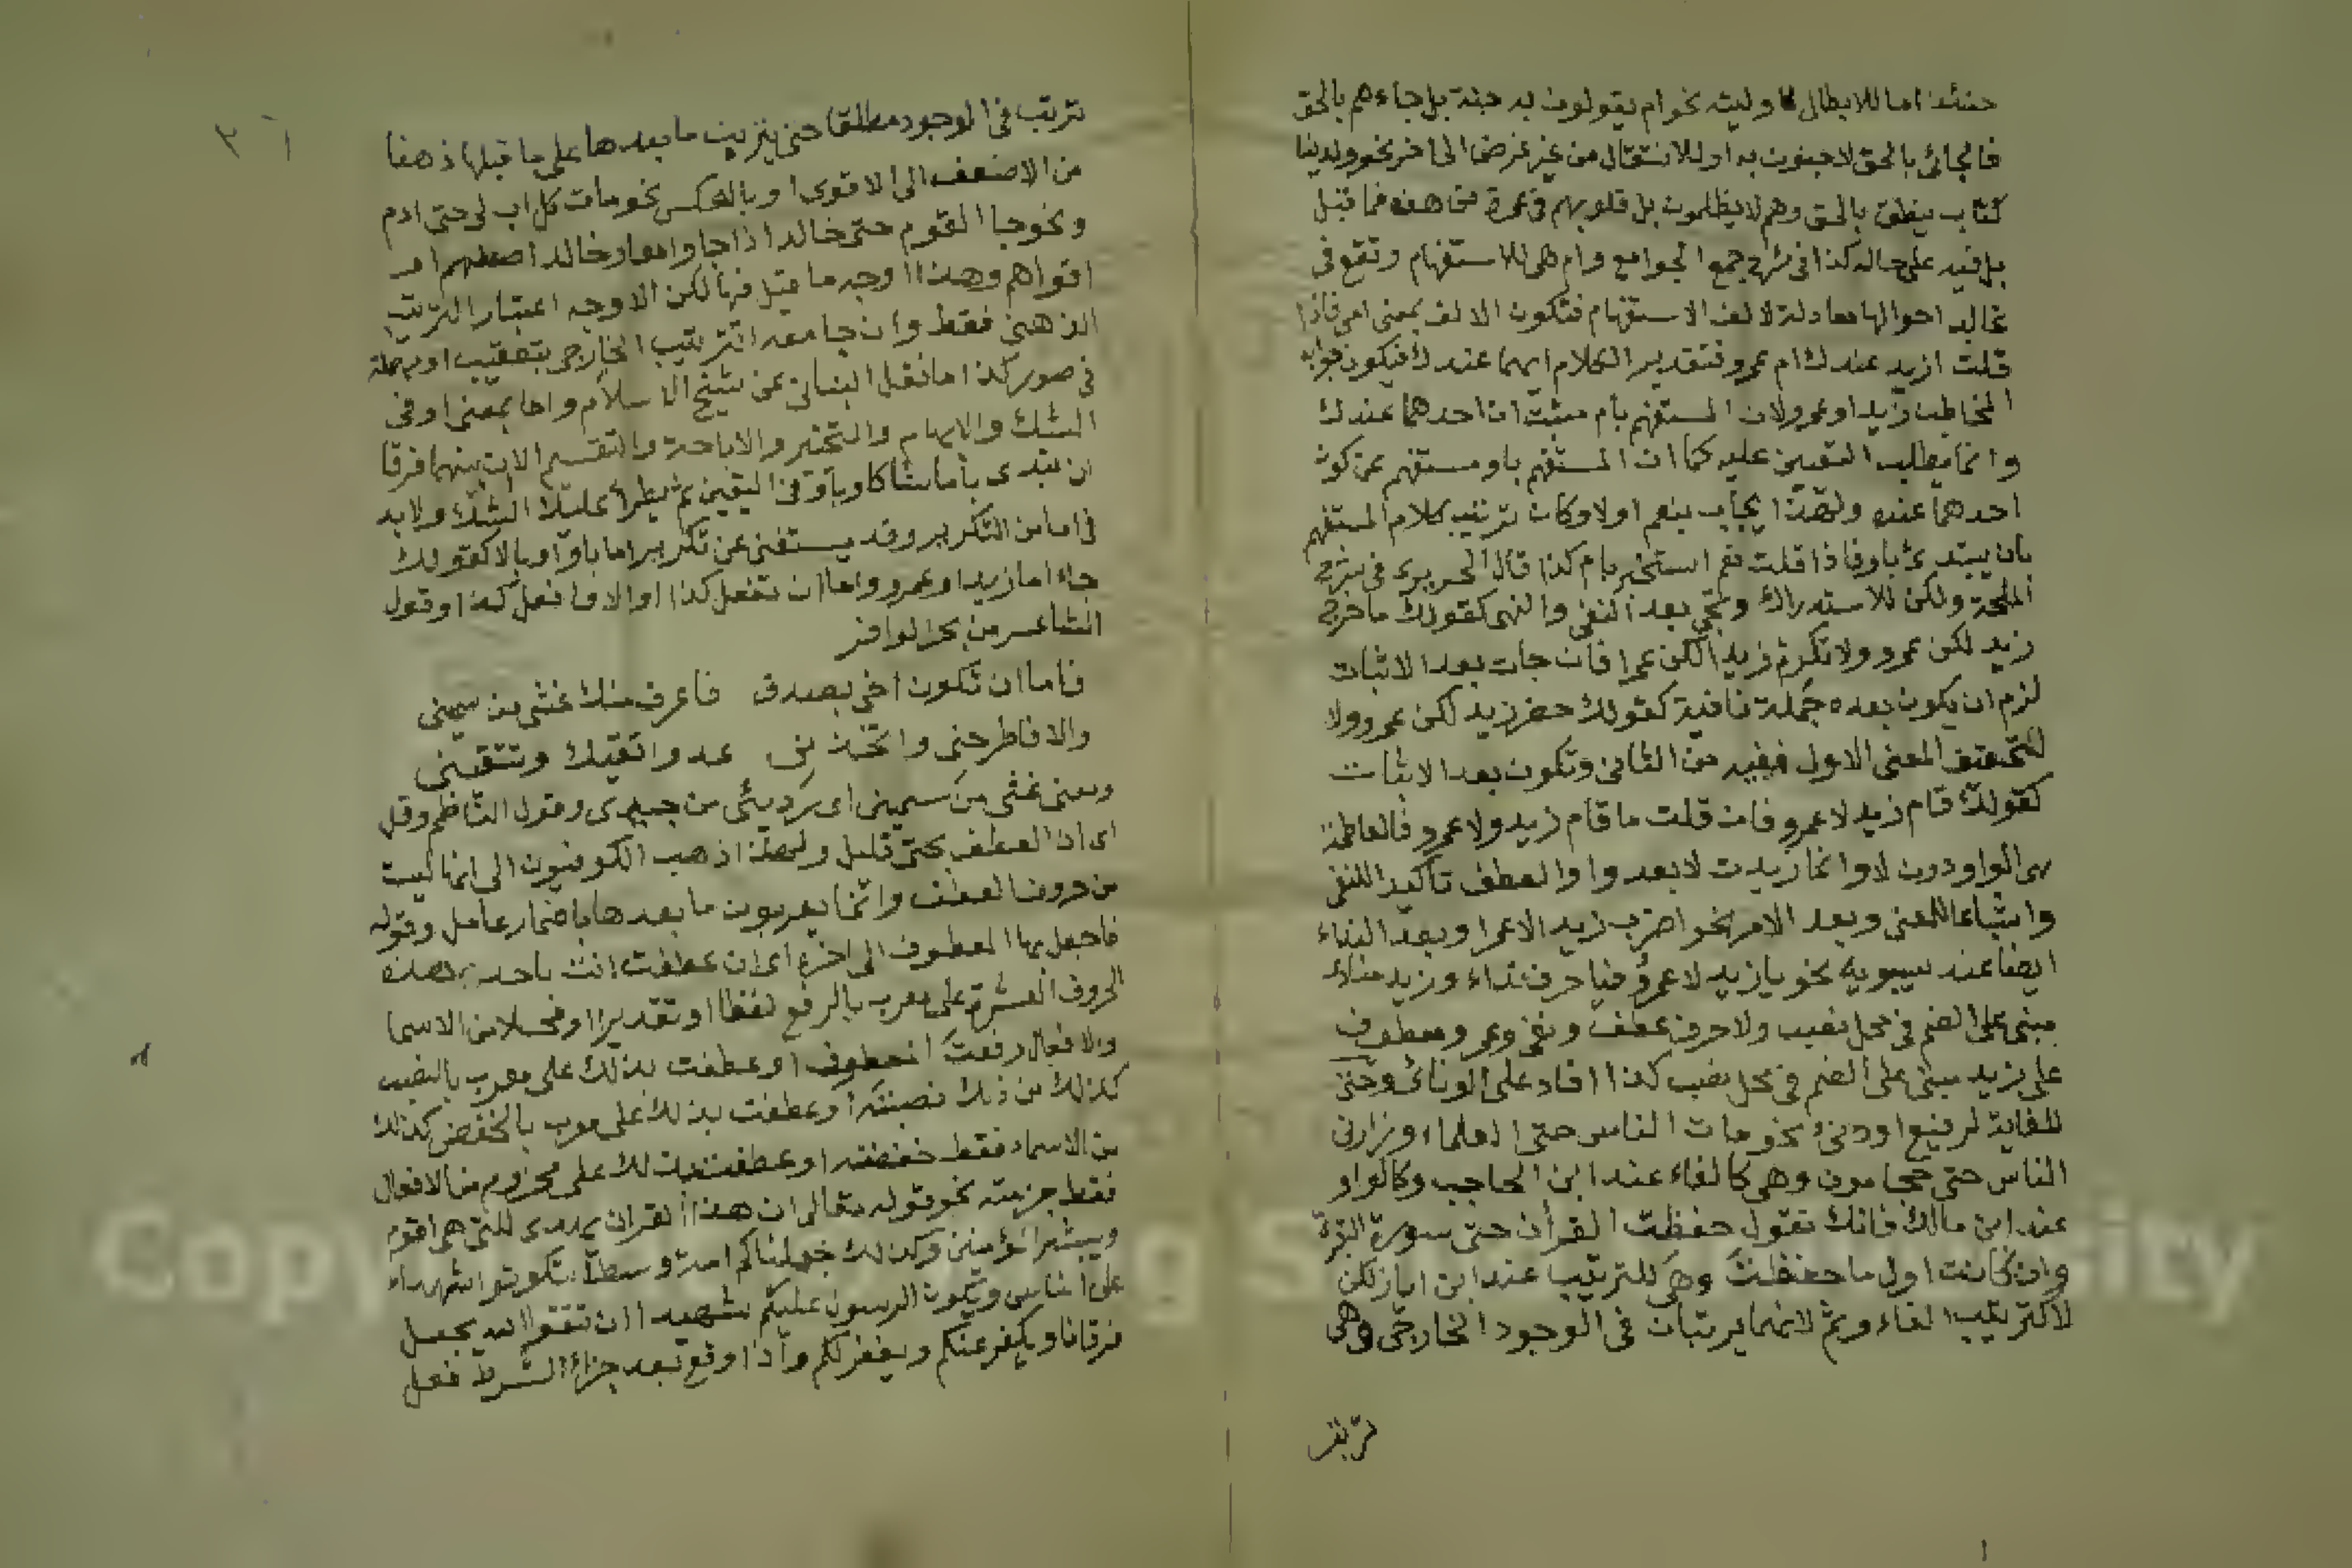 حينئذ اما للابطال لما وليته نحو ام يقولون به جنة بل جاءهم بالحق
فالجائي بالحق لا جنون به او للانتقال من غرض الى اخر نحو ولدينا
كتاب ينطق بالحق وهم لا يظلمون بل قلوبهم في غمرة من هذا فما قبل
بل فيه على حاله كذا في شرح جمع الجوامع وام هي للاستفهام وتقع في
غالب احوالها معادلة لالف الاستفهام فتكون الالف بمعنى اي فاذا
قلت ازيد عندك ام عمرو فتقدير الكلام ايهما عندك فيكون جواب
المخاطب زيد او عمرو لان المستفهم بام مثبت ان احدهما عندك
وانما يطلب التعيين عليه كما ان المستفهم باو مستفهم عن كون
احدهما عنده ولهذا يجاب بنعم او لا وكان ترتيب كلام المستفهم
بان يبتدئ باو فاذا قلت نعم استخبر بام كذا قال الحريري في شرح
الملحة ولكن للاستدراك وتجي بعد النفي والنهي كقولك ما خرج
زيد لكن عمرو ولا تكرم زيدا لكن عمرا فان جات بعد الاثبات
لزم ان يكون بعده جملة نافية كقولك حضر زيد لكن عمرو ولا
لتحقيق المعنى الاول فيه من الثاني وتكون بعد الاثبات
كقولك قام زيد لا عمرو فان قلت ما قام زيد ولا عمرو فالعاطفة
هي الواو دون لا وانما زيدت لا بعد واو العطف تاكيدا للنفي
واشباعا للمعنى وبعد الامر نحو اضرب زيدا لا عمرا وبعد النداء
ايضا عند سيبويه نحو يا زيد لا عمرو فيا حرف نداء وزيد منادى
مبني على الضم في محل نصب ولا حرف عطف ونفي وعمرو معطوف
على زيد مبني على الضم في محل نصب كذا افاد على الونائي وحتى
للغاية لرفيع او دني نحو مات الناس حتى العلماء وزارني
الناس حتى حجامون وهي كالفاء عند ابن الحاجب وكالواو
عند ابن مالك فانك تقول حفظت القرأن حتى سورة البقرة
وان كانت اول ما حفظت وهي للترتيب عند ابن اياز لكن
لا كترتيب الفاء وثم لانهما يرتبان في الوجود الخارجي وهي
ترتب
٣٦
ترتب في الوجود مطلقا حتى يترتب ما بعدها على ما قبلها ذهنا
من الاضعف الى الاقوى او بالعكس نحو مات كل اب لي حتى ادم
ونحو جا القوم حتى خالد اذا جاوا معا وخالد اضعفهم او
اقواهم وهذا اوجه ما قيل فيها لكن الاوجه اعتبار الترتيب
الذهني فقط وان جامعه الترتيب الخارجي بتعقيب او مهملة
في صور كذا ما نقل البناني عن شيخ الاسلام واما بمعنى او في
الشك والابهام والتخيير والاباحة والتقسيم الا ان بينهما فرقا
ان يبتدى باما شاكا وباو في اليقين ثم يطرأ عليك الشك ولا بد
في اما من التكرير وقد يستغنى عن تكرير اما باو او بالا كقولك
جاء اما زيد او عمرو واما ان تفعل كذا او الا فافعل كذا وقول
الشاعر من بحر الوافر
فاما ان تكون اخي بصدق فاعرف منك غثي من سميني
والا فاطرحني واتخذني عدوا اتقيك وتتقيني
ومعنى غثي من سميني اى رديئي من جيدى وقول الناظم وقل
اى ان العطف بحتى قليل ولهذا ذهب الكوفيون الى انها ليست
من حروف العطف وانما يعربون ما بعدها باضمار عامل وقوله
فاجعل بها المعطوف الى اخره اى ان عطفت انت باحد هذه
الحروف العشرة على معرب بالرفع لفظا او تقديرا او محلا من الاسما
والافعال رفعت المعطوف او عطفت بذلك على معرب بالنصب
كذلك من ذلك نصبته او عطفت بذلك على معرب بالخفض كذلك
من الاسماء فقط خفضته او عطفت بذلك على مجزوم من الافعال
فقط جزمته نحو قوله تعالى ان هذا القران يهدى للتي هي اقوم
ويبشر المؤمنين وكذلك جعلناكم امة وسطا لتكونوا شهداء
على الناس ويكون الرسول عليكم شهيدا ان تتقوا الله يجعل
فرقانا ويكفر عنكم ويغفر لكم واذا وقع بعد جزاء الشرط فعل
Copy g S sity